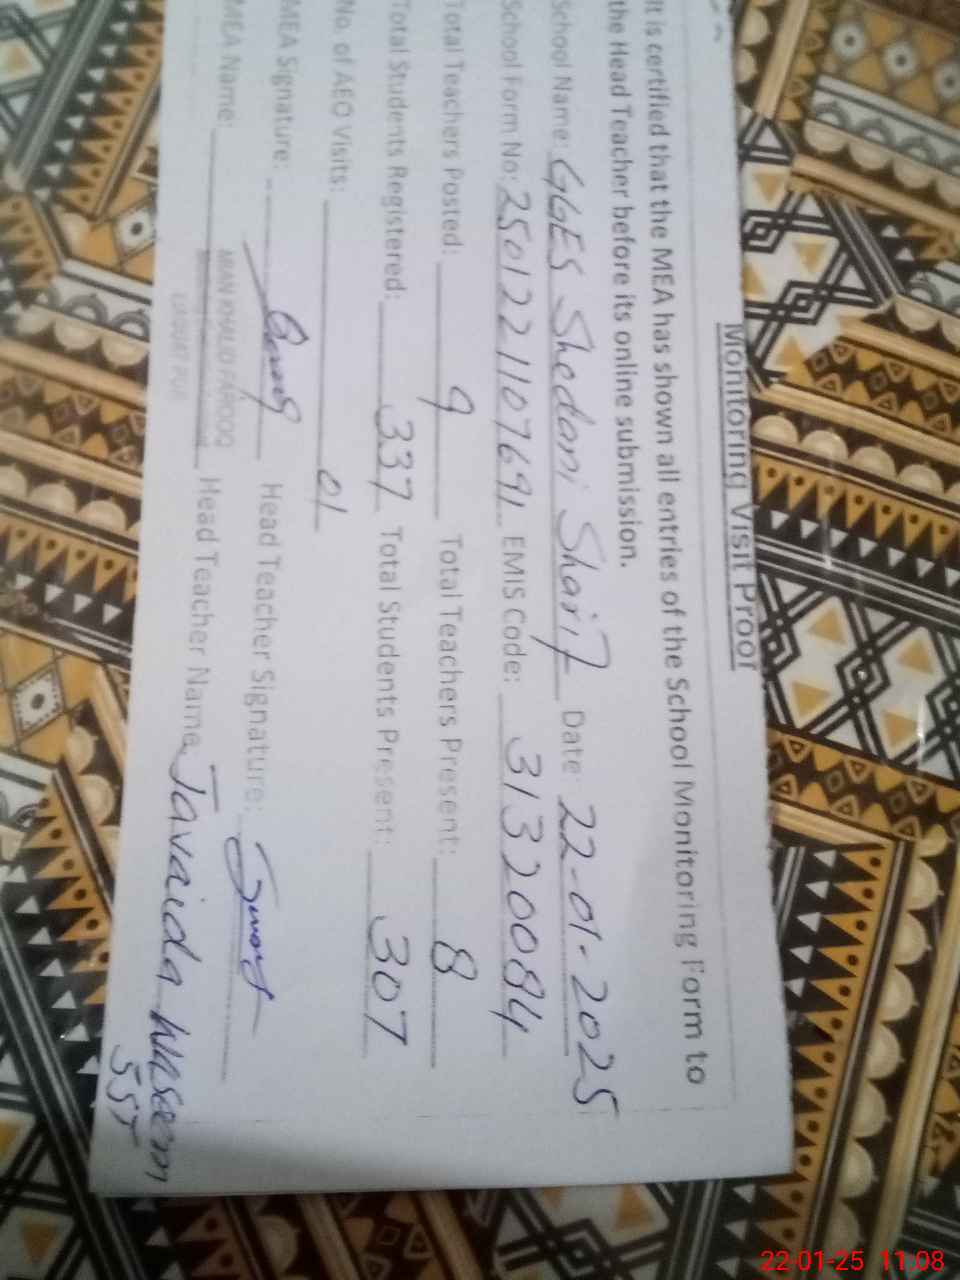 Monitoring Visit Proof
It is certified that the MEA has shown all entries of the School Monitoring Form to
the Head Teacher before its online submission.
School Name: GGES Shedani Sharif Date: 22-01-2025
School Form No: 2501221107691 EMIS Code: 31320084
Total Teachers Posted: 9 Total Teachers Present: 8
Total Students Registered: 337 Total Students Present: 307
No. of AEO Visits: 01
MEA Signature: Head Teacher Signature:
MEA Name: MIAN KHALID FAROOQ Head Teacher Name Javaida Waseem
LIAQAT PUR
SST
22-01-25 11:08